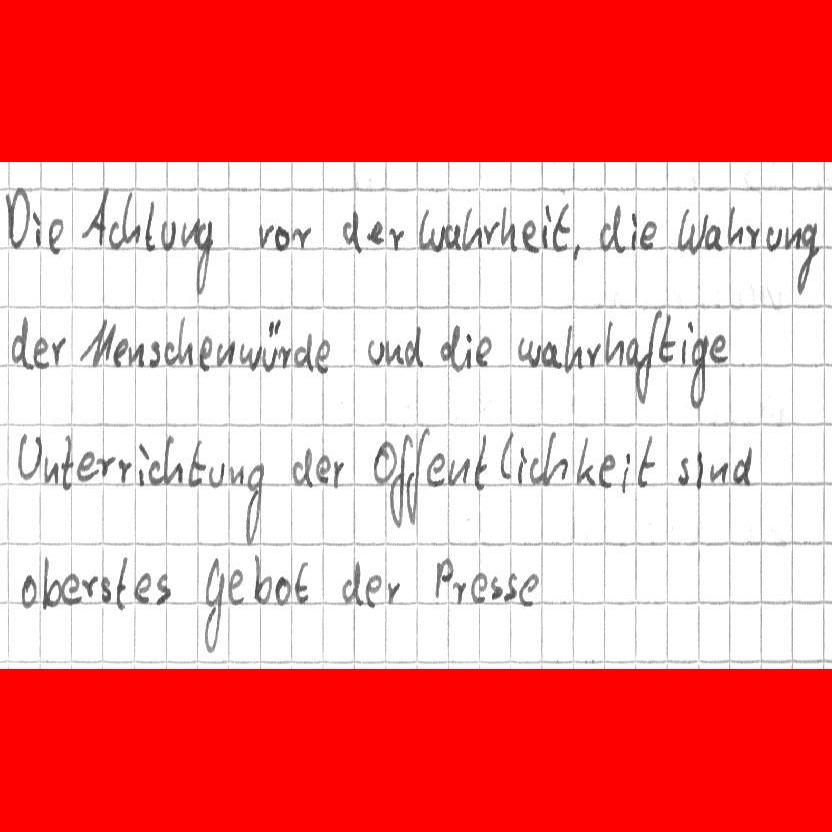 Die Achtung vor der Wahrheit, die Wahrung
der Menschenwürde und die wahrhaftige
Unterrichtung der Öffentlichkeit sind
oberstes Gebot der Presse